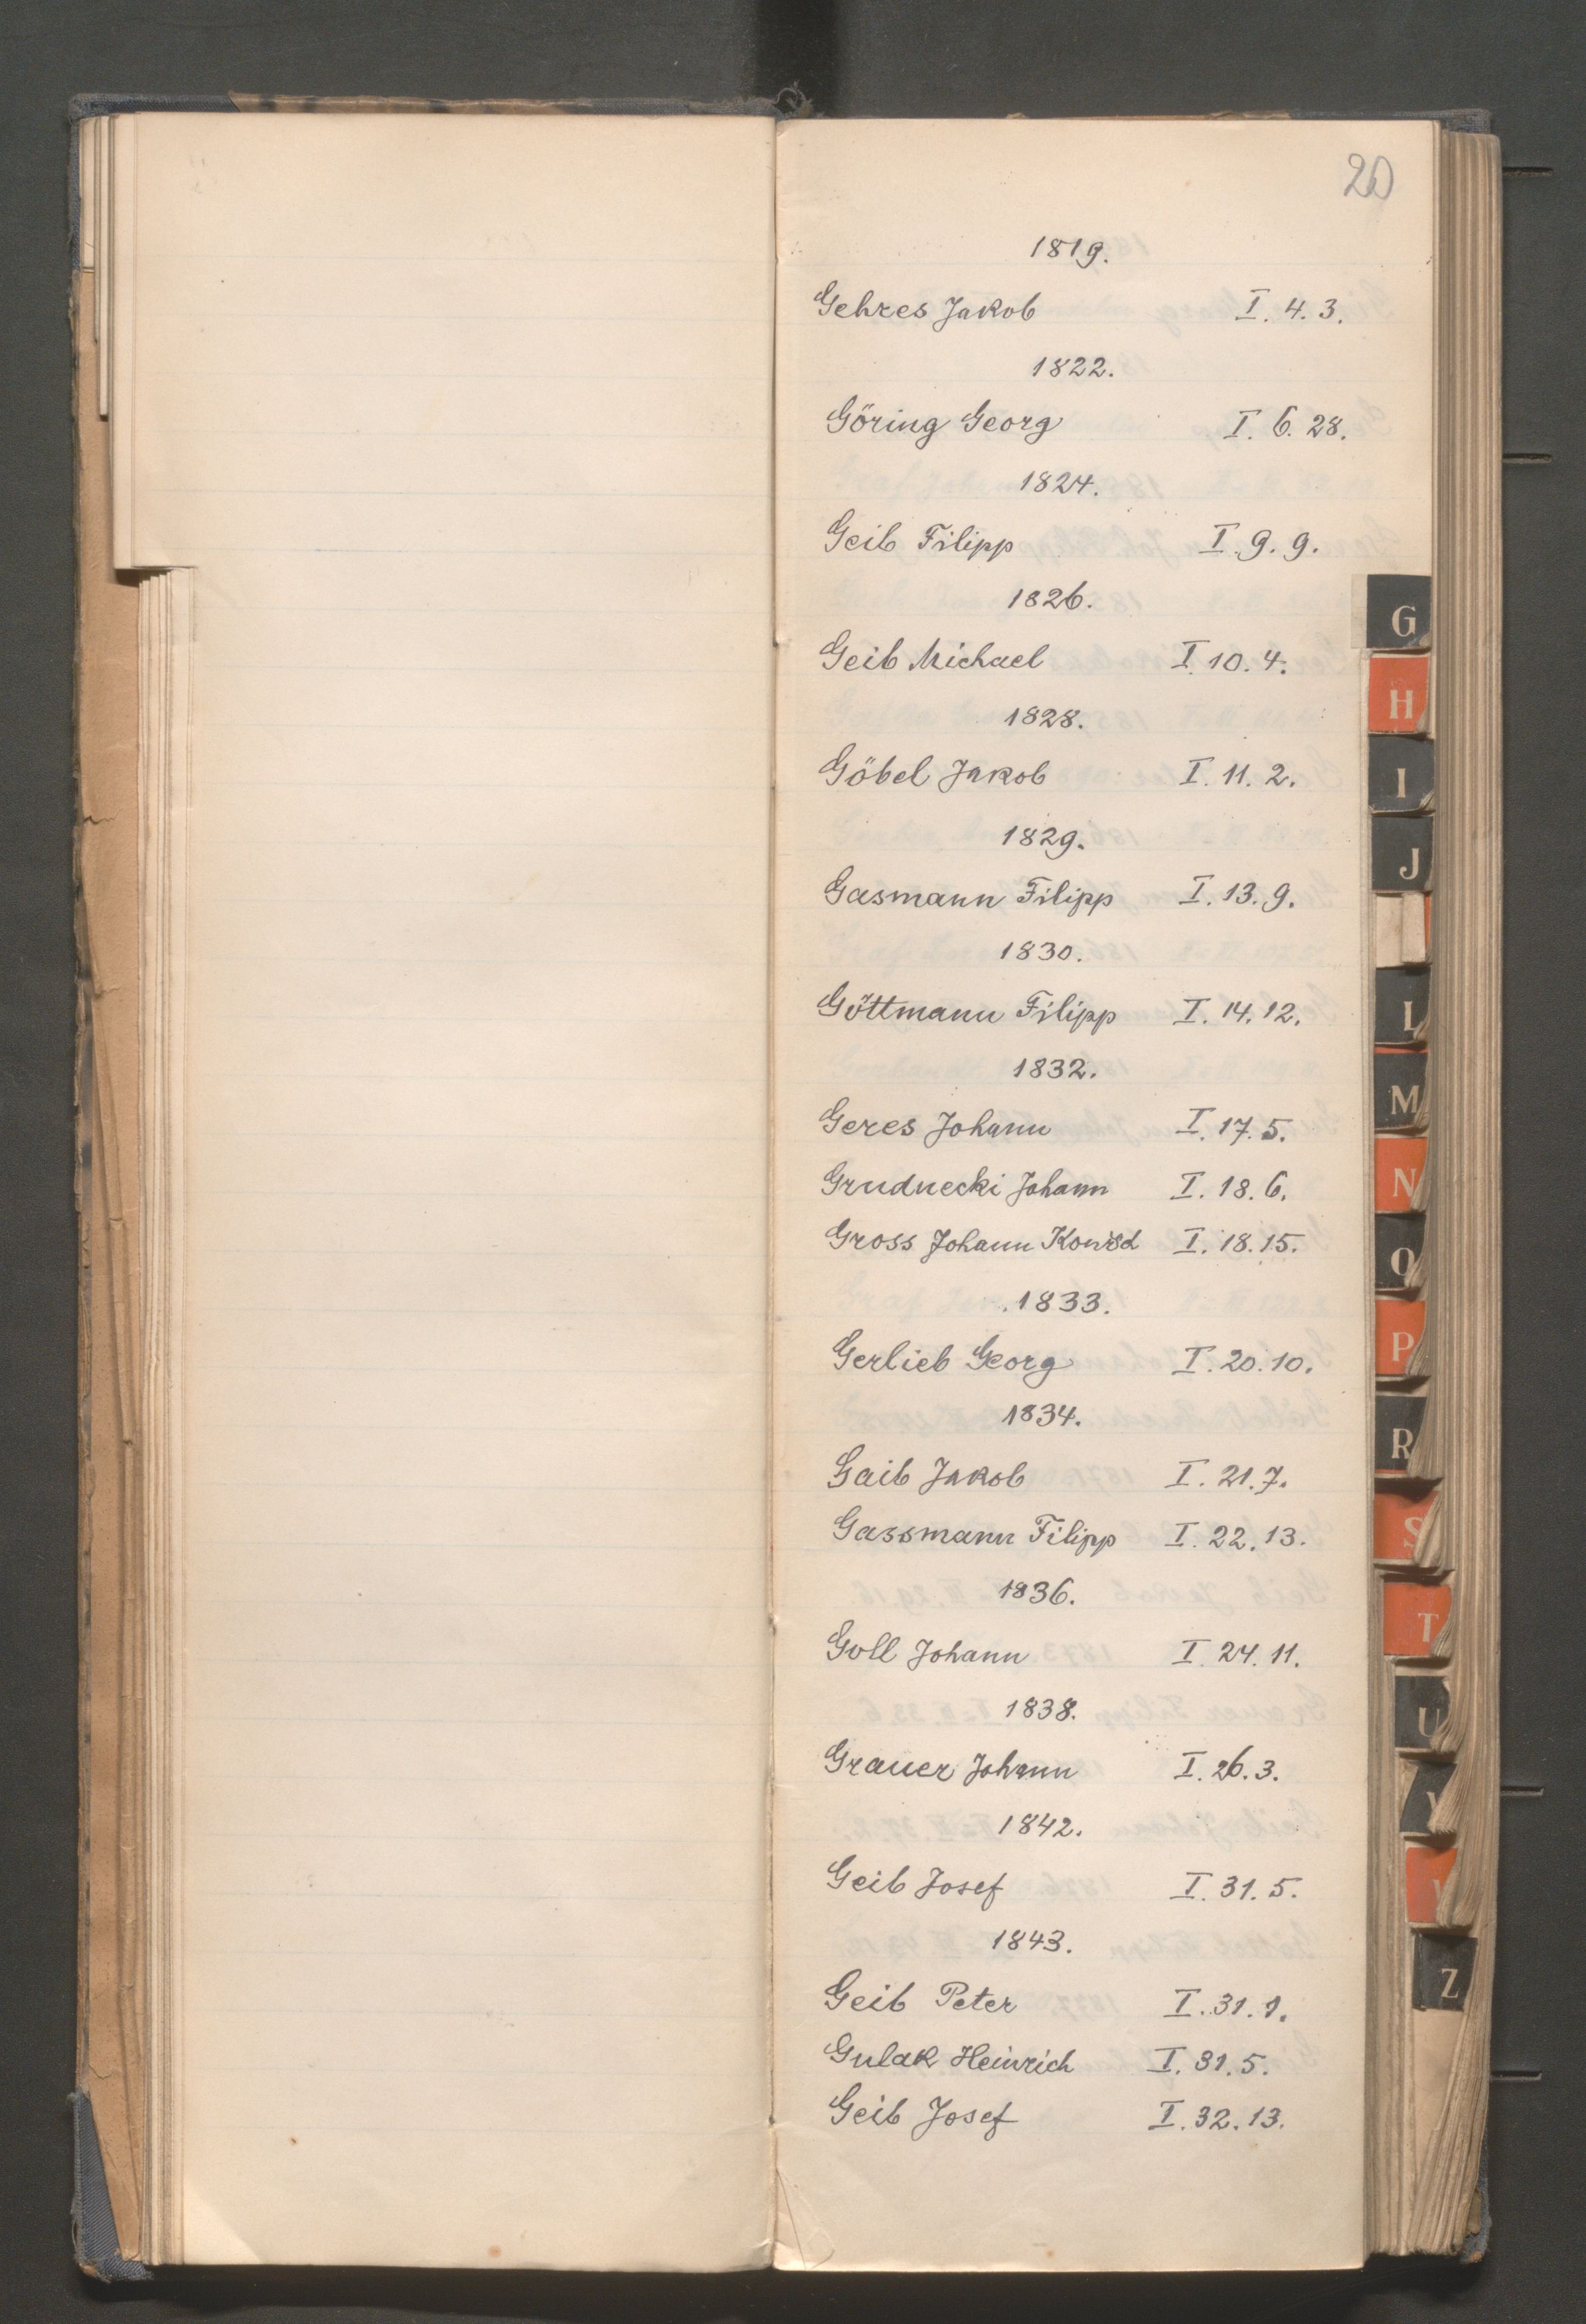 20
1819.
Gehres Jakob I. 4. 3.
1822.
Göring Georg I. 6. 28.
1824.
Geib Filipp I. 9. 9.
1826.
Geib Michael I. 10. 4.
1828.
Göbel Jakob I. 11. 2.
1829.
Gasmann Filipp I. 13. 9.
1830.
Göttmann Filipp I. 14. 12.
1832.
Geres Johann I. 17. 5.
Grudnecki Johann I. 18. 6.
Gross Johann Konrad I. 18. 15.
1833.
Gerlieb Georg I. 20. 10.
1834.
Gaib Jakob I. 21. 7.
Gassmann Filipp I. 22. 13.
1836.
Goll Johann I. 24. 11.
1838.
Grauer Johann I. 26. 3.
1842.
Geib Josef I. 31. 5.
1843.
Geib Peter I. 31. 1.
Gulak Heinrich I. 31. 5.
Geib Josef I. 32. 13.
G
H
I
J
L
M
N
O
P
R
S
T
U
Z